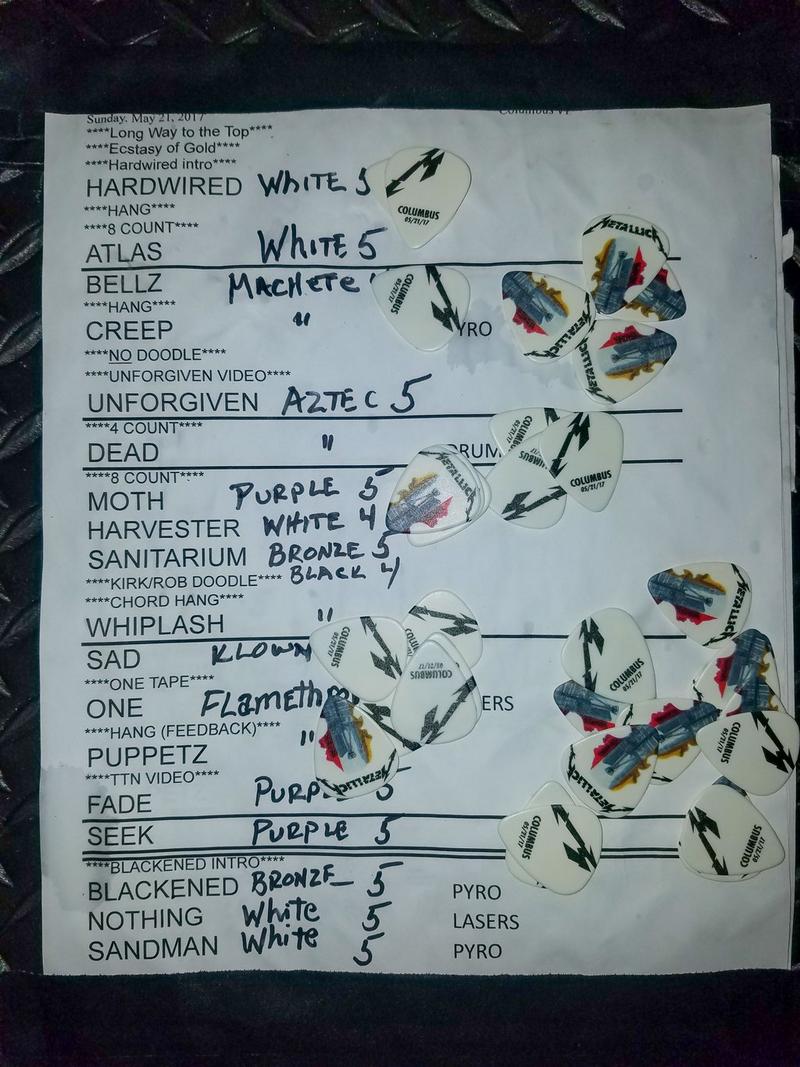 Sunday, May 21, 2017
****Long Way to the Top****
****Ecstasy of Gold****
****Hardwired intro****
HARDWIRED WHITE 5
COLUMBUS
05/21/17
****HANG****
****8 COUNT****
ATLAS WHITE 5
METALLICA
BELLZ MACHETE
COLUMBUS
05/21/17
****HANG****
CREEP " YRO
METALLICA
METALLICA
****NO DOODLE****
****UNFORGIVEN VIDEO****
UNFORGIVEN AZTEC 5
****4 COUNT****
COLUMBUS
05/21/17
DEAD " DRUM
COLUMBUS
05/21/17
METALLICA
****8 COUNT****
MOTH PURPLE 5
HARVESTER WHITE 4
SANITARIUM BRONZE 5
****KIRK/ROB DOODLE**** BLACK 4
****CHORD HANG****
METALLICA
WHIPLASH "
COLUMBUS
05/21/17
SAD KLOWN
COLUMBUS
05/21/17
COLUMBUS
05/21/17
****ONE TAPE****
ONE FLAMETH ERS
****HANG (FEEDBACK)****
PUPPETZ "
COLUMBUS
05/21/17
METALLICA
METALLICA
****TTN VIDEO****
FADE PURPLE 5
SEEK PURPLE 5
COLUMBUS
05/21/17
COLUMBUS
05/21/17
****BLACKENED INTRO****
BLACKENED BRONZE 5 PYRO
NOTHING White 5 LASERS
SANDMAN White 5 PYRO